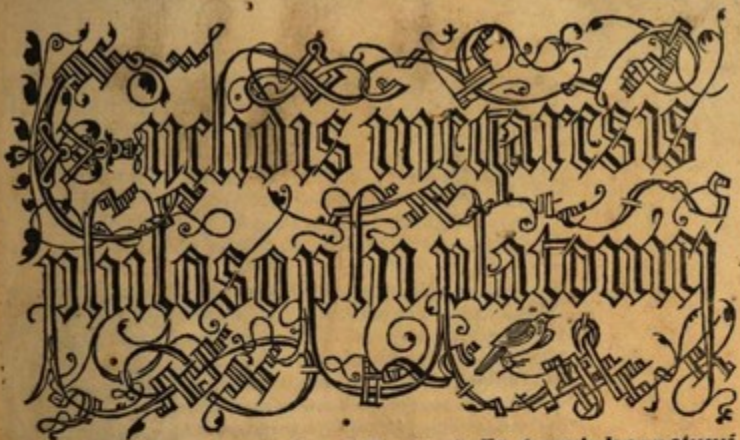 Euclidis megaresis
philosophi platonicj